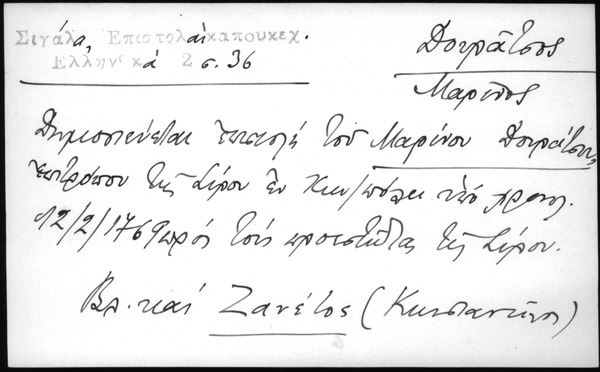 Σιγάλα, Επιστολαί καπουκεχ.
Ελληνικά 2 σ. 36
Δουρᾶτσος
Μαρῖνος
Δημοσιεύεται ἐπιστολή τοῦ Μαρίνου Δουράτσου,
ἐπιτρόπου τῆς Σύρου ἐν Κων/πόλει ὑπό χρονολ.
12/2/1769 πρός τούς προεστῶτας τῆς Σύρου.
Βλ. καί Ζανέτος (Κωνσταντῖνος)